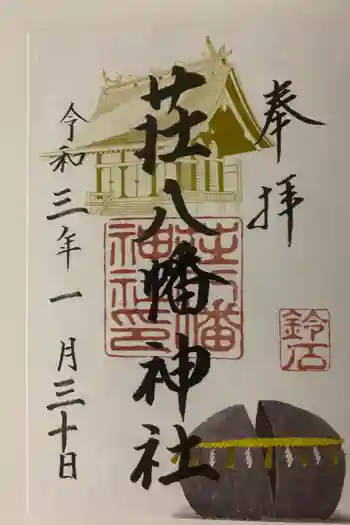 奉拝
荘八幡神社
令和三年一月三十日
荘八幡神社印
鈴石